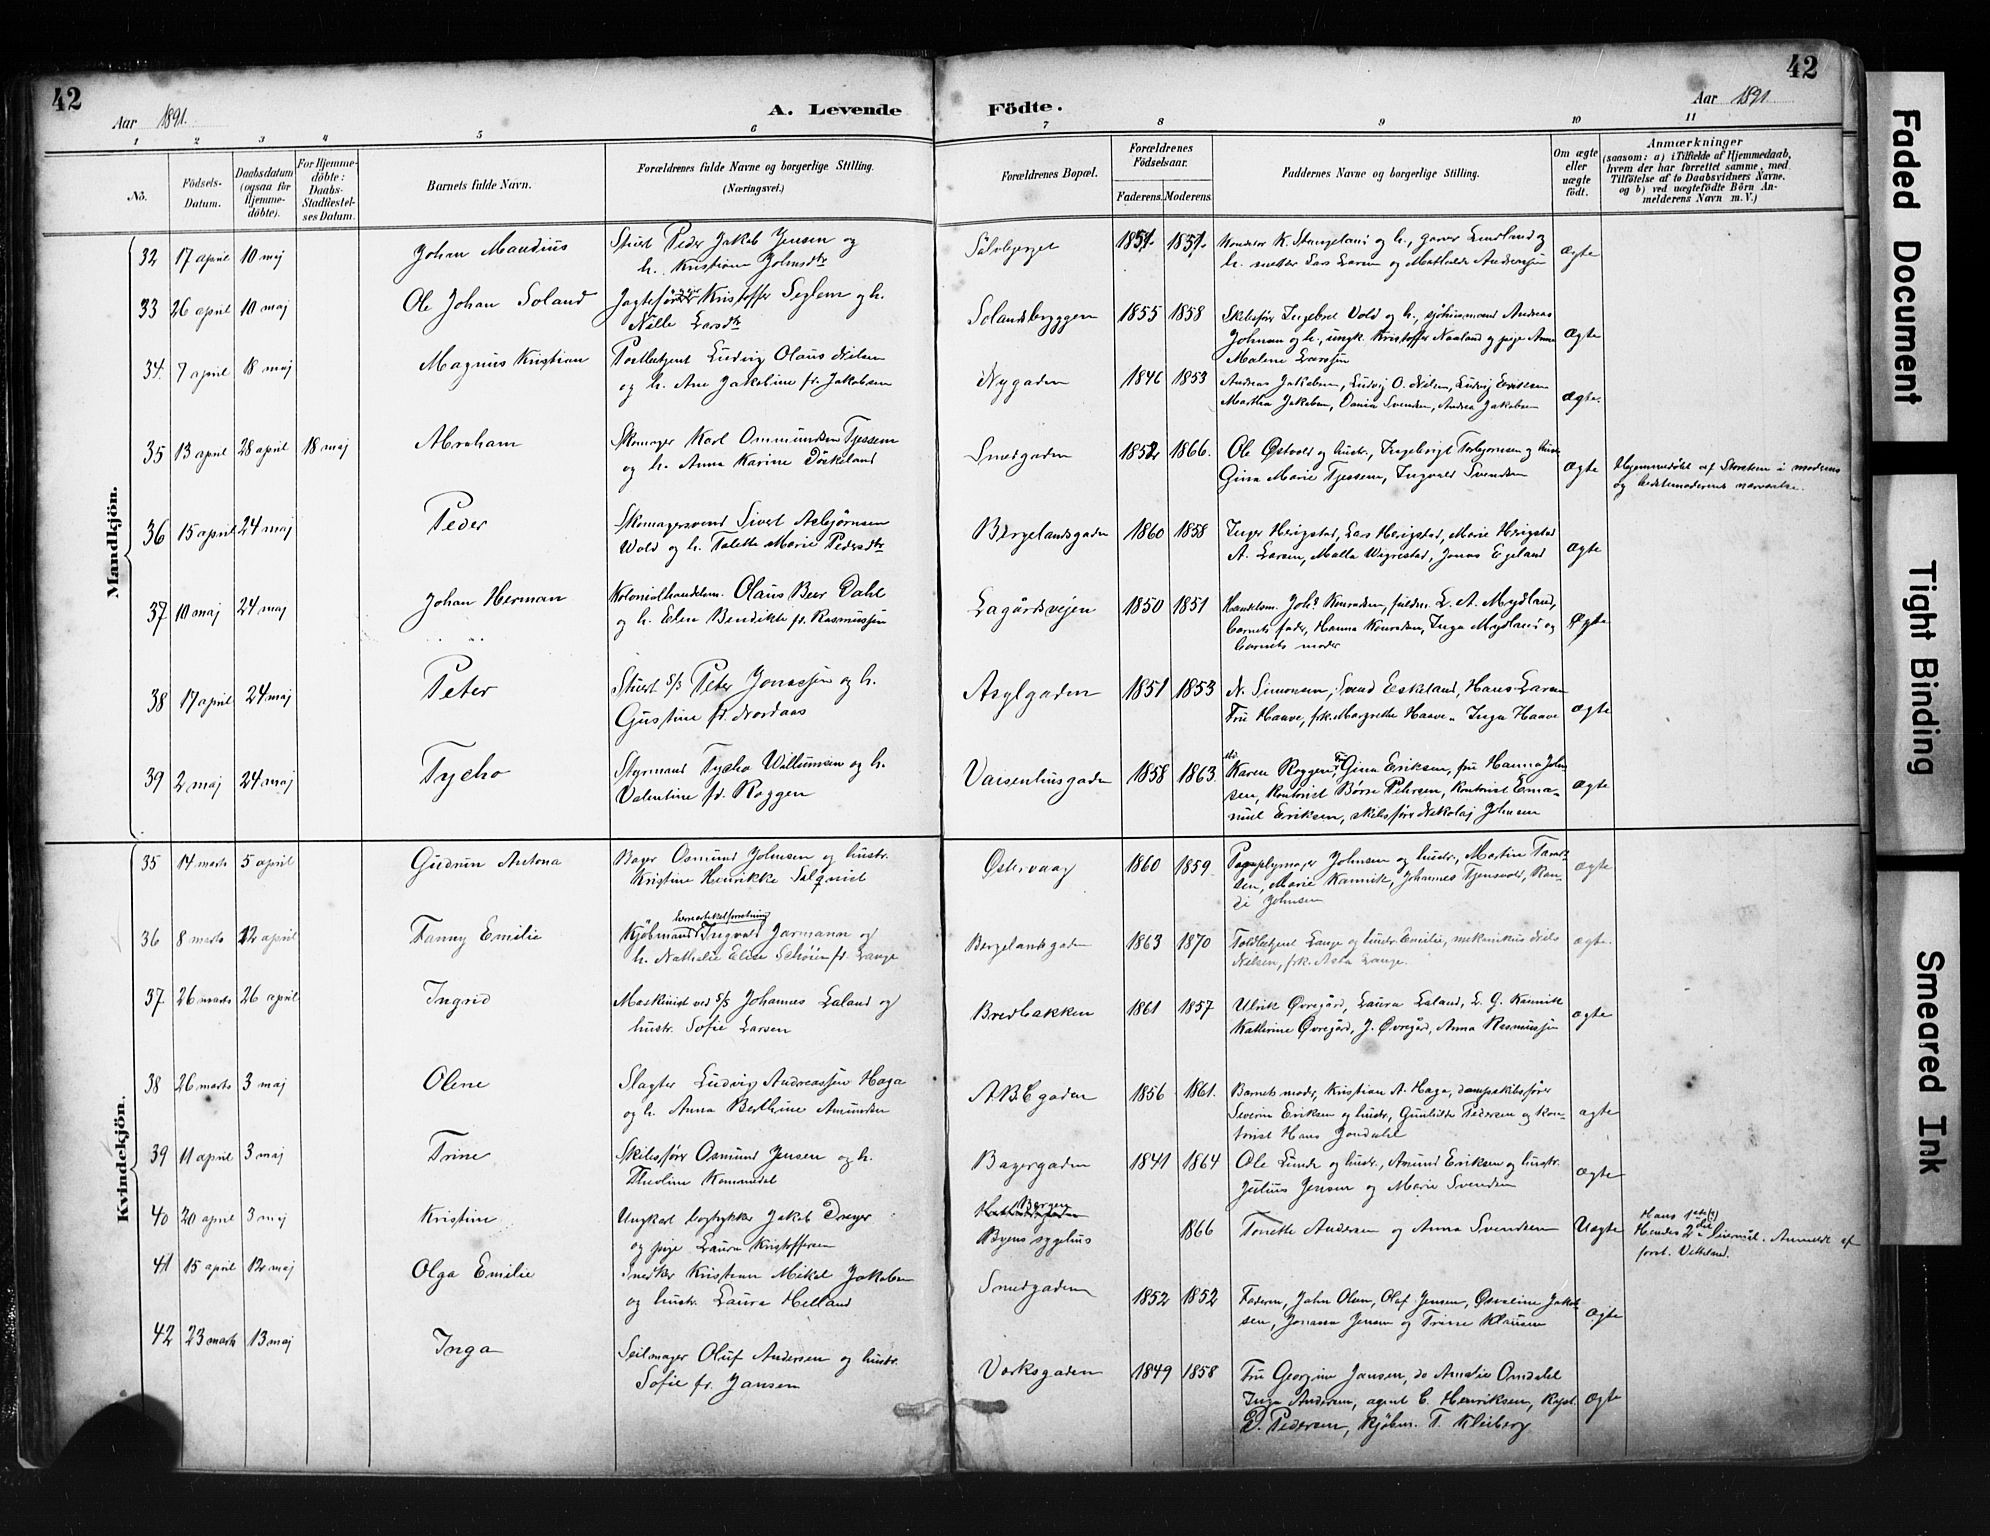 42
42
Aar 1891.
A. Levende Födte.
Aar 1891
1 2 3 4 5 6 7 8 9 10 11
No.
Födsels-
Datum.
Daabsdatum
(ogsaa for
Hjemme-
döbte).
For Hjemme-
döbte:
Daabs-
Stadfæstel-
ses Datum.
Barnets fulde Navn.
Forældrenes fulde Navne og borgerlige Stilling.
(Næringsvei.)
Forældrenes Bopæl.
Forældrenes
Födselsaar.
Faderens. Moderens.
Faddernes Navne og borgerlige Stilling.
Om ægte
eller
uægte
født.
Anmærkninger
(saasom: a) i Tilfælde af Hjemmedaab,
hvem der har forrettet samme, med
Tilföielse af to Daabsvidners Navne.
og b) ved uægtefödte Börn An-
melderens Navn m. V.)
Mandkjön.
32 17 april 10 maj Johan Maudius
Stuert Peder Jakob Jensen og
h. Kristiane Johnsdtr
Sølvbjerget 1851. 1851.
K. Stangeland og h., Lindland og
Lars Larsen og Mathilde Andreassen
ægte
33 26 april 10 maj Ole Johan Soland
Jagtefører Kristoffer Seglem og h.
Nille Larsdtr
Solandsbryggen 1855 1858
Skibsfør Ingebret Vold og h., Andreas
Johnsen og h., ungk. Kristoffer Naaland og pige Anne
Malene Larsen
ægte
34. 7 april 18 maj Magnus Kristian
Postbetjent Ludvig Olaus Nielsen
og h. Ane Jakobine fr. Jakobsen
Nygaden 1846 1853
Andreas Jakobsen, Ludvig O. Nielsen, Ludvig Eriksen
Martha Jakobsen, Dania Svendsen, Andrea Jakobsen
ægte.
35 13 april 28 april 18 maj Abraham
Skomager Karl Ommundsen Tjessem
og h. Anna Karine Törkeland
Smedgaden 1852 1866.
Ole Østvold og hustr., Ingebrigt Torbjørnsen og hustr
Gina Marie Tjessem, Ingvald Svendsen
ægte
Hjemmedøbt af Storsten i moderens
og bedstemoderens nærværelse.
36 15 april 24 maj Peder
Skomagersvend Sivert Asbjørnsen
Wold og h. Talette Marie Pedersdtr
Bergelandsgaden 1860 1858
Inger Herigstad, Lars Herigstad, Marie Herigstad
A. Larsen, Malla Wigrestad, Jonas Egeland
ægte
37 10 maj 24 maj Johan Herman
Kolonialhandelsm. Olaus Beer Dahl
og h. Elen Bendikte fr. Rasmussen
Lagårdsvejen 1850 1851
Handelsm. Johs Konradsen, L. A. Mydland,
barnets fader, Hanna Konradsen, Inga Mydland og
barnets moder
Ægte
38 17 april 24 maj Peter
Stuert S/S Peter Jonassen og h.
Gustine fr. Nordaas
Asylgaden 1851 1853
N. Simonsen, Svend Eskeland, Hans Larsen
Fru Haave, frk. Margrethe Haave, Inga Haave
ægte
39 2 maj 24 maj Tycho
Styrmand Tycho Willumsen og h.
Valentine fr. Roggen
Vaisenhusgaden 1858 1863.
Karen Roggen, Gina Eriksen, fru Hanna John
sen, kontorist Børre Petersen, kontorist Ema-
nuel Eriksen, skibsfør Nikolaj Johnsen
ægte
Kvindekjön.
35 14 marts 5 april Gudrun Antona
Bager Osmund Johnsen og hustr.
Kristine Henrikke Salqvist
Østervaag 1860 1859.
Johnsen og hustr., Martin
sen, Marie Kannik, Johannes Tjensvold, Ran-
di Johnsen
ægte
36 8 marts 12 april Fanny Emilie
Kjøbmand Ingvald Jarmann og
h. Nathalie Elise Schöien fr. Lange
Bergelandsgaden 1863 1870
Toldbetjent Lange og hustr. Emilie, mekanikus Niels
Nielsen, frk. Asta Lange.
ægte.
37. 26 marts 26 april Ingrid
Maskinist ved S/S Johannes Laland og
hustr. Sofie Larsen
Bredbakken 1861 1857
Ulrik Øvregård, Laura Laland, L. G. Kannik
Kathrine Øvregård, J. Øvregård, Anna Rasmussen
ægte
38 26 marts 3 maj Olene
Slagter Ludvig Andreassen Haga
og h. Anna Berthine Amundsen
A B C gaden 1856 1861.
Barnets moder, Kristian A. Haga, dampskibsfører
Severin Eriksen og hustr., Gunhilde Pedersen og kon-
torist Hans Jondahl
ægte
39 11 april 3 maj Trine
Skibsfør Osmund Jensen og h.
Theoline Romundal
Bagergaden 1841 1864
Ole Lunde og hustr., Amund Eriksen og hustr.
Julius Jensen og Marie Svendsen
ægte
40 20 april 3 maj Kristine
Ungkarl bogtrykker Jakob Dreyer
og pige Laura Kristoffersen
Bergen
Byens sygehus 1866
Tonette Andersen og Anna Svendsen
Uægte
Hans 1ste(?)
Hendes 2det leiermål. Anmeldt af
forst. Vetteland.
41 15 april 12 maj Olga Emilie
Snedker Kristian Mikal Jakobsen
og hustr. Laura Helland
Smedgaden 1852 1852
Faderen, John Olsen, Olaf Jensen, Osvaline Jakob
sen, Johanna Jensen og Trine Klausen
ægte
42 23 marts 13 maj Inga
Seilmager Oluf Andersen og hustr.
Sofie fr. Jansen
Værksgaden 1849 1858
Fru Georgine Jansen, do Amalie Omdahl
Inga Andersen, agent C. Henriksen, kapt.
D. Pedersen, Kjøbm. T. Kleiberg
ægte
Faded Document
Tight Binding
Smeared Ink